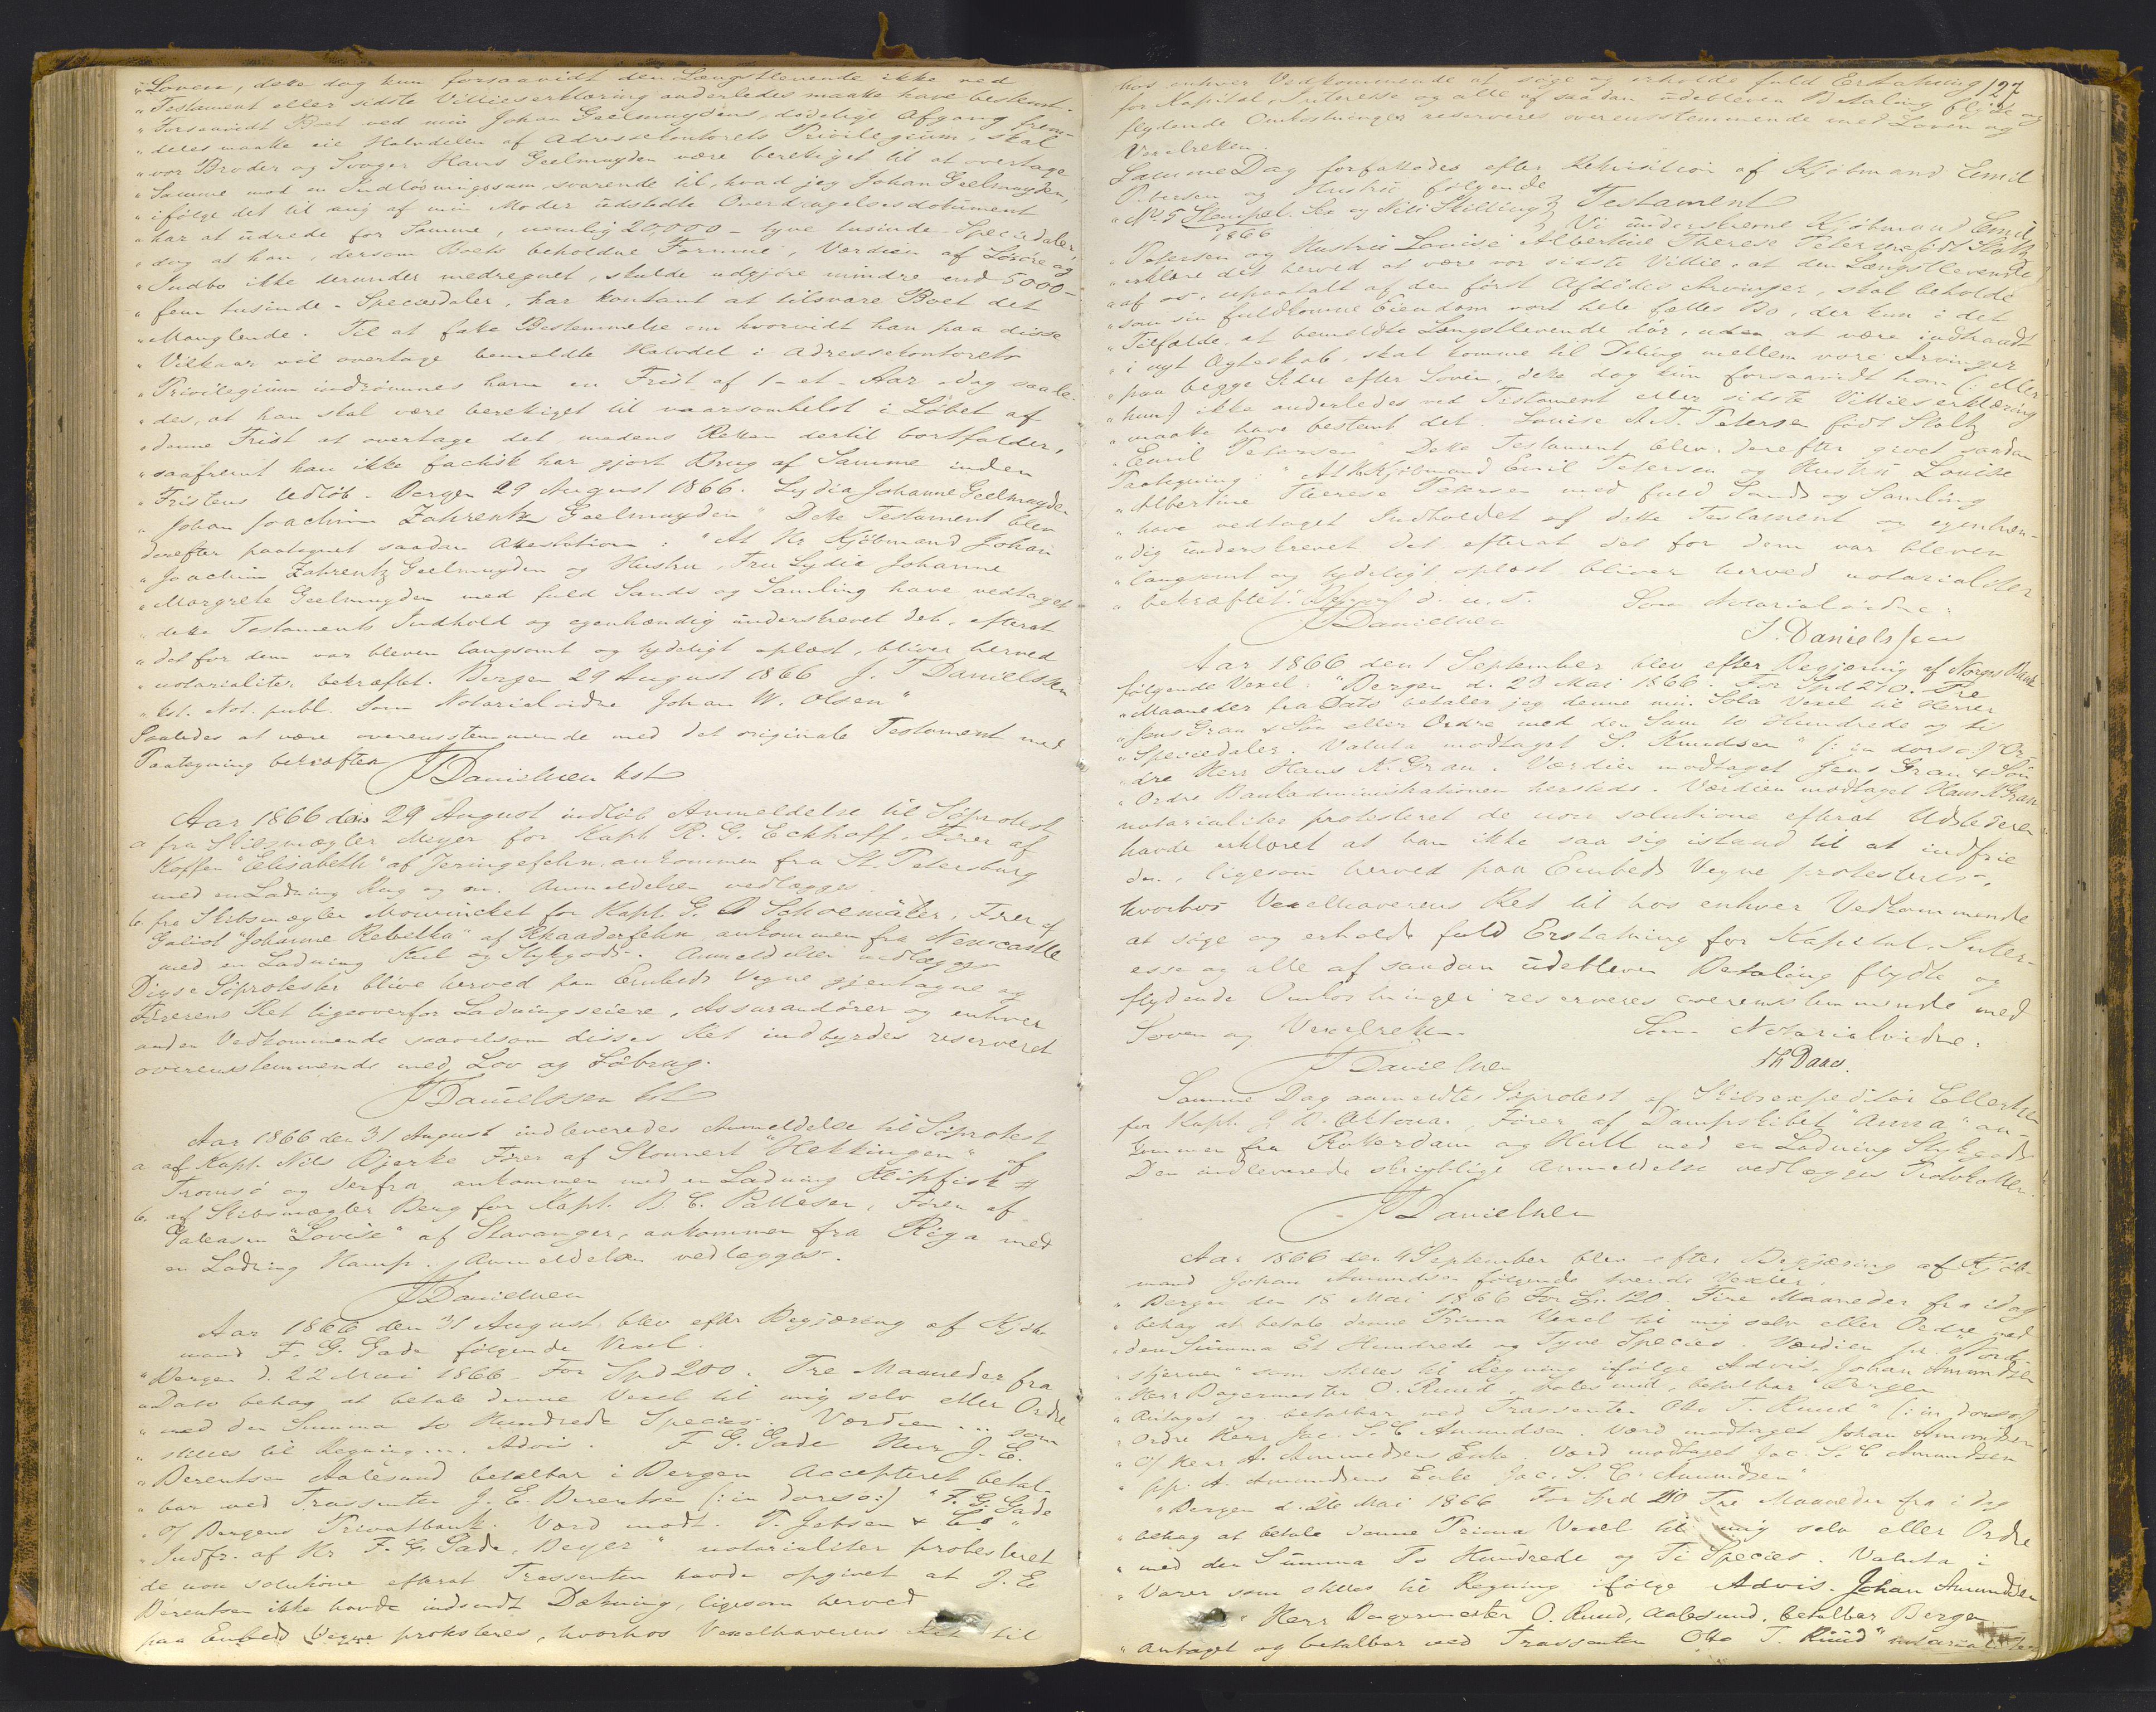 "Loven, dette dog kun forsaavidt den Længstlevende ikke ved
"Testament eller sidste Villieserklæring anderledes maatte have bestemt.
"Forsaavidt Boet ved min Johan Geelmuydens, dødelige Afgang frem-
"deles maatte eie Halvdelen af Adressekontorets Privilegium, skal
"vor Broder og Svoger Hans Geelmuyden være berettiget til at overtage
"Samme mod en Indløsningssum, svarende til, hvad jeg Johan Geelmuyden,
"ifølge det til mig af min Moder udstedte Overdragelsesdokument
"har at udrede for Samme, nemlig 20,000 - tyve tusinde - Speciedaler,
"dog at han, dersom Boets beholdne Formue, Værdien af Løsøre og
"Indbo ikke derunder medregnet, skulde udgjøre mindre end 5000 -
"fem tusinde - Speciesdaler, har kontant at tilsvare Boet det
"Manglende. Til at fatte Bestemmelse om hvorvidt han paa disse
"Vilkaar vil overtage bemeldte Halvdel i Adressekontorets
"Privilegium indrømmes ham en Frist af 1 - et - Aar, dog saale-
"des, at han skal være berettiget til naarsomhelst i Løbet af
"denne Frist at overtage det, medens Retten dertil bortfalder,
"saafremt han ikke factisk har gjort Brug af Samme inden
"Fristens Udløb. Bergen 29 August 1866. Lydia Johanne Geelmuyden
"Johan Joachim Zahrentz Geelmuyden" Dette Testament blev
derefter paategnet saadan Attestation: "At Hr Kjøbmand Johan
"Joachim Zahrentz Geelmuyden og Hustru, Fru Lydia Johanne
"Margrete Geelmuyden med fuld Sands og Samling have vedtaget
"dette Testaments Indhold og egenhændig underskrevet det, efterat
"det for dem var bleven langsomt og tydeligt oplæst, bliver herved
"notarialiter bekræftet. Bergen 29 August 1866 J. T Danielssen
"kst. Not. publ. Som Notarialvidne Johan W. Olsen"
Saaledes at være overensstemmende med det originale Testament med
Paategning bekræftes
JTDanielssen kst
Aar 1866 den 29 August indløb Anmeldelse til Søprotest
a fra Skibsmægler Meyer for Kapt R. G. Eckhoff, Fører af
Koffen "Elisabeth" af Jeringsfehn, ankommen fra St. Petersburg
med en Ladning Rug og m. Anmeldelsen vedlægges.
b. fra Skibsmægler Mowinckel for Kapt. G. Schoemäker, Fører af
Galiot "Johanne Rebekka" af Rhauderfehn ankommen fra Newcastle
med en Ladning Kul og Stykgods. Anmeldelsen vedlægges
Disse Søprotester blive herved paa Embeds Vegne gjentagne og
Førerens Ret ligeoverfor Ladningseiere, Assurandører og enhver
anden Vedkommende saavelsom disses Ret indbyrdes reserveret
overensstemmende med Lov og Søbrug.
JTDanielssen kst
Aar 1866 den 31 August indleveredes Anmeldelse til Søprotest
a af Kapt. Nils Bjerke Fører af Skonnert "Hekkingen" af
Tromsø og derfra ankommen med en Ladning Klipfisk
b. af Skibsmægler Berg for Kapt. B. C. Pallesen, Fører af
Galeasen "Lovise" af Stavanger, ankommen fra Riga med
en Ladning Hamp. Anmeldelsen vedlægges.
JTDanielssen
Aar 1866 den 31 August blev efter Begjæring af Kjøb-
mand F. G. Gade følgende Vexel.
"Bergen d. 22 Mai 1866 For Spd 200. Tre Maaneder fra
"Dato behag at betale denne Vexel til mig selv eller Ordre
"med den Summa to Hundrede Species. Værdien ... som
"stilles til Regning ... Advis. F. G. Gade Herr J. E.
"Berentsen Aalesund betalbar i Bergen Accepteret betal-
"bar ved Trassenten J. E. Berentsen (: in dorso:) "F. G. Gade
"O/ Bergens Privatbank. Værd modt. P. Jebsen & Co"
"Indfr. af Hr F. G. Gade, Beyer" notarialiter protesteret
de non solutione efterat Trassenten havde opgivet at J. E.
Berentsen ikke havde indsendt Dækning, ligesom herved
paa Embeds Vegne protesteres, hvorhos Vexelhaverens Ret til
127
hos enhver Vedkommende at søge og erholde fuld Erstatning
for Kapital, Interesse og alle af saadan udebleven Betaling flydte og
flydende Omkostninger reserveres overensstemmende med Loven og
Vexelretten.
Samme Dag forfattedes efter Rekvisition af Kjøbmand Emil
Petersen og Hustru følgende Testament
"No 5 Stempel. Sex og Niti Skilling
1866
Vi underskrevne Kjøbmand Emil
"Petersen og Hustru Louise Albertine Therese Petersen født Stoltz
"erklære det herved at være vor sidste Villie, at den Længstlevende
"af os, upaatalt af den først Afdødes Arvinger, skal beholde
"som sin fuldkomne Eiendom vort hele fælles Bo, der kun i det
"Tilfælde, at bemeldte Længstlevende dør, uden at være indtraadt
"i nyt Ægteskab, skal komme til Deling mellem vore Arvinger
"paa begge Sider efter Loven, dette dog kun forsaavidt han (: eller
"hun:) ikke anderledes ved Testament eller sidste Villieserklæring
"maatte have bestemt det. Louise A. T. Petersen født Stoltz
"Emil Petersen" Dette Testament blev derefter givet saadan
Paategning: "At Hr Kjøbmand Emil Petersen og Hustru Louise
"Albertine Therese Petersen med fuld Sands og Samling
"have vedtaget Indholdet af dette Testament og egenhæn-
"dig underskrevet det efterat det for dem var bleven
"langsomt og tydeligt oplæst bliver herved notarialiter
"bekræftet." Bergen d. u. s. Som Notarialvidne:
JTDanielssen J. Danielssen
Aar 1866 den 1 September blev efter Begjæring af Norges Bank
følgende Vexel: "Bergen d. 23 Mai 1866. For Spd 210. Tre
"Maaneder fra Dato betaler jeg denne min Sola Vexel til Herrer
"Jens Gran & Søn eller Ordre med den Sum to Hundrede og ti
"Speciedaler. Valuta modtaget S. Knudsen" (: in dorso:) "Or-
"dre Herr Hans K. Gran. Værdien modtaget Jens Gran & Søn
"Ordre Bankadministrationen hersteds. Værdien modtaget Hans K Gran
notarialiter protesteret de non solutione efterat Udstederen
havde erklæret at han ikke saa sig istand til at indfrie
den, ligesom herved paa Embeds Vegne protesteres,
hvorhos Vexelhaverens Ret til hos enhver Vedkommende
at søge og erholde fuld Erstatning for Kapital, Inter-
esse og alle af saadan udebleven Betaling flydte og
flydende Omkostninger reserveres overensstemmende med
Loven og Vexelretten. Som Notarialvidne:
JTDanielssen Th Daae.
Samme Dag anmeldtes Søprotest af Skibsexpeditør Ellertsen
for Kapt. J. N. Altona, Fører af Dampskibet "Anna" an-
kommen fra Rotterdam og Hull med en Ladning Stykgods
Den indleverede skriftlige Anmeldelse vedlægges Protokollen.
JTDanielssen
Aar 1866 den 4 September blev efter Begjæring af Kjøb-
mand Johan Amundsen følgende tvende Vexler.
"Bergen den 18 Mai 1866 For Sp. 120. Fire Maaneder fra idag
"behag at betale denne Prima Vexel til mig selv eller Ordre med
"den Summa Et Hundrede og Tyve Species. Værdien pr. "Nord-
"stjernen" som stilles til Regning ifølge Advis. Johan Amundsen
"Herr Bagermester O. Ruud, Aalesund, betalbar Bergen
"Antaget og betalbar ved Trassenten Otto T. Ruud" (: in dorso:)
"Ordre Herr Jac. S. C Amundsen. Værd modtaget Johan Amundsen
"O/ Herr A. Ammundsens Enke. Værd modtaget Jac. S. C Amundsen
"pp. A. Amundsens Enke Jac. S. C. Amundsen"
"Bergen d. 26 Mai 1866 For Spd 210 Tre Maaneder fra i dag
"behag at betale denne Prima Vexel til mig selv eller Ordre
"med den Summa To Hundrede og Ti Species. Valuta i
"Varer som stilles til Regning ifølge Advis. Johan Amundsen
"Herr Bagermester O. Ruud, Aalesund, betalbar Bergen
"Antaget og betalbar ved Trassenten Otto T. Ruud"